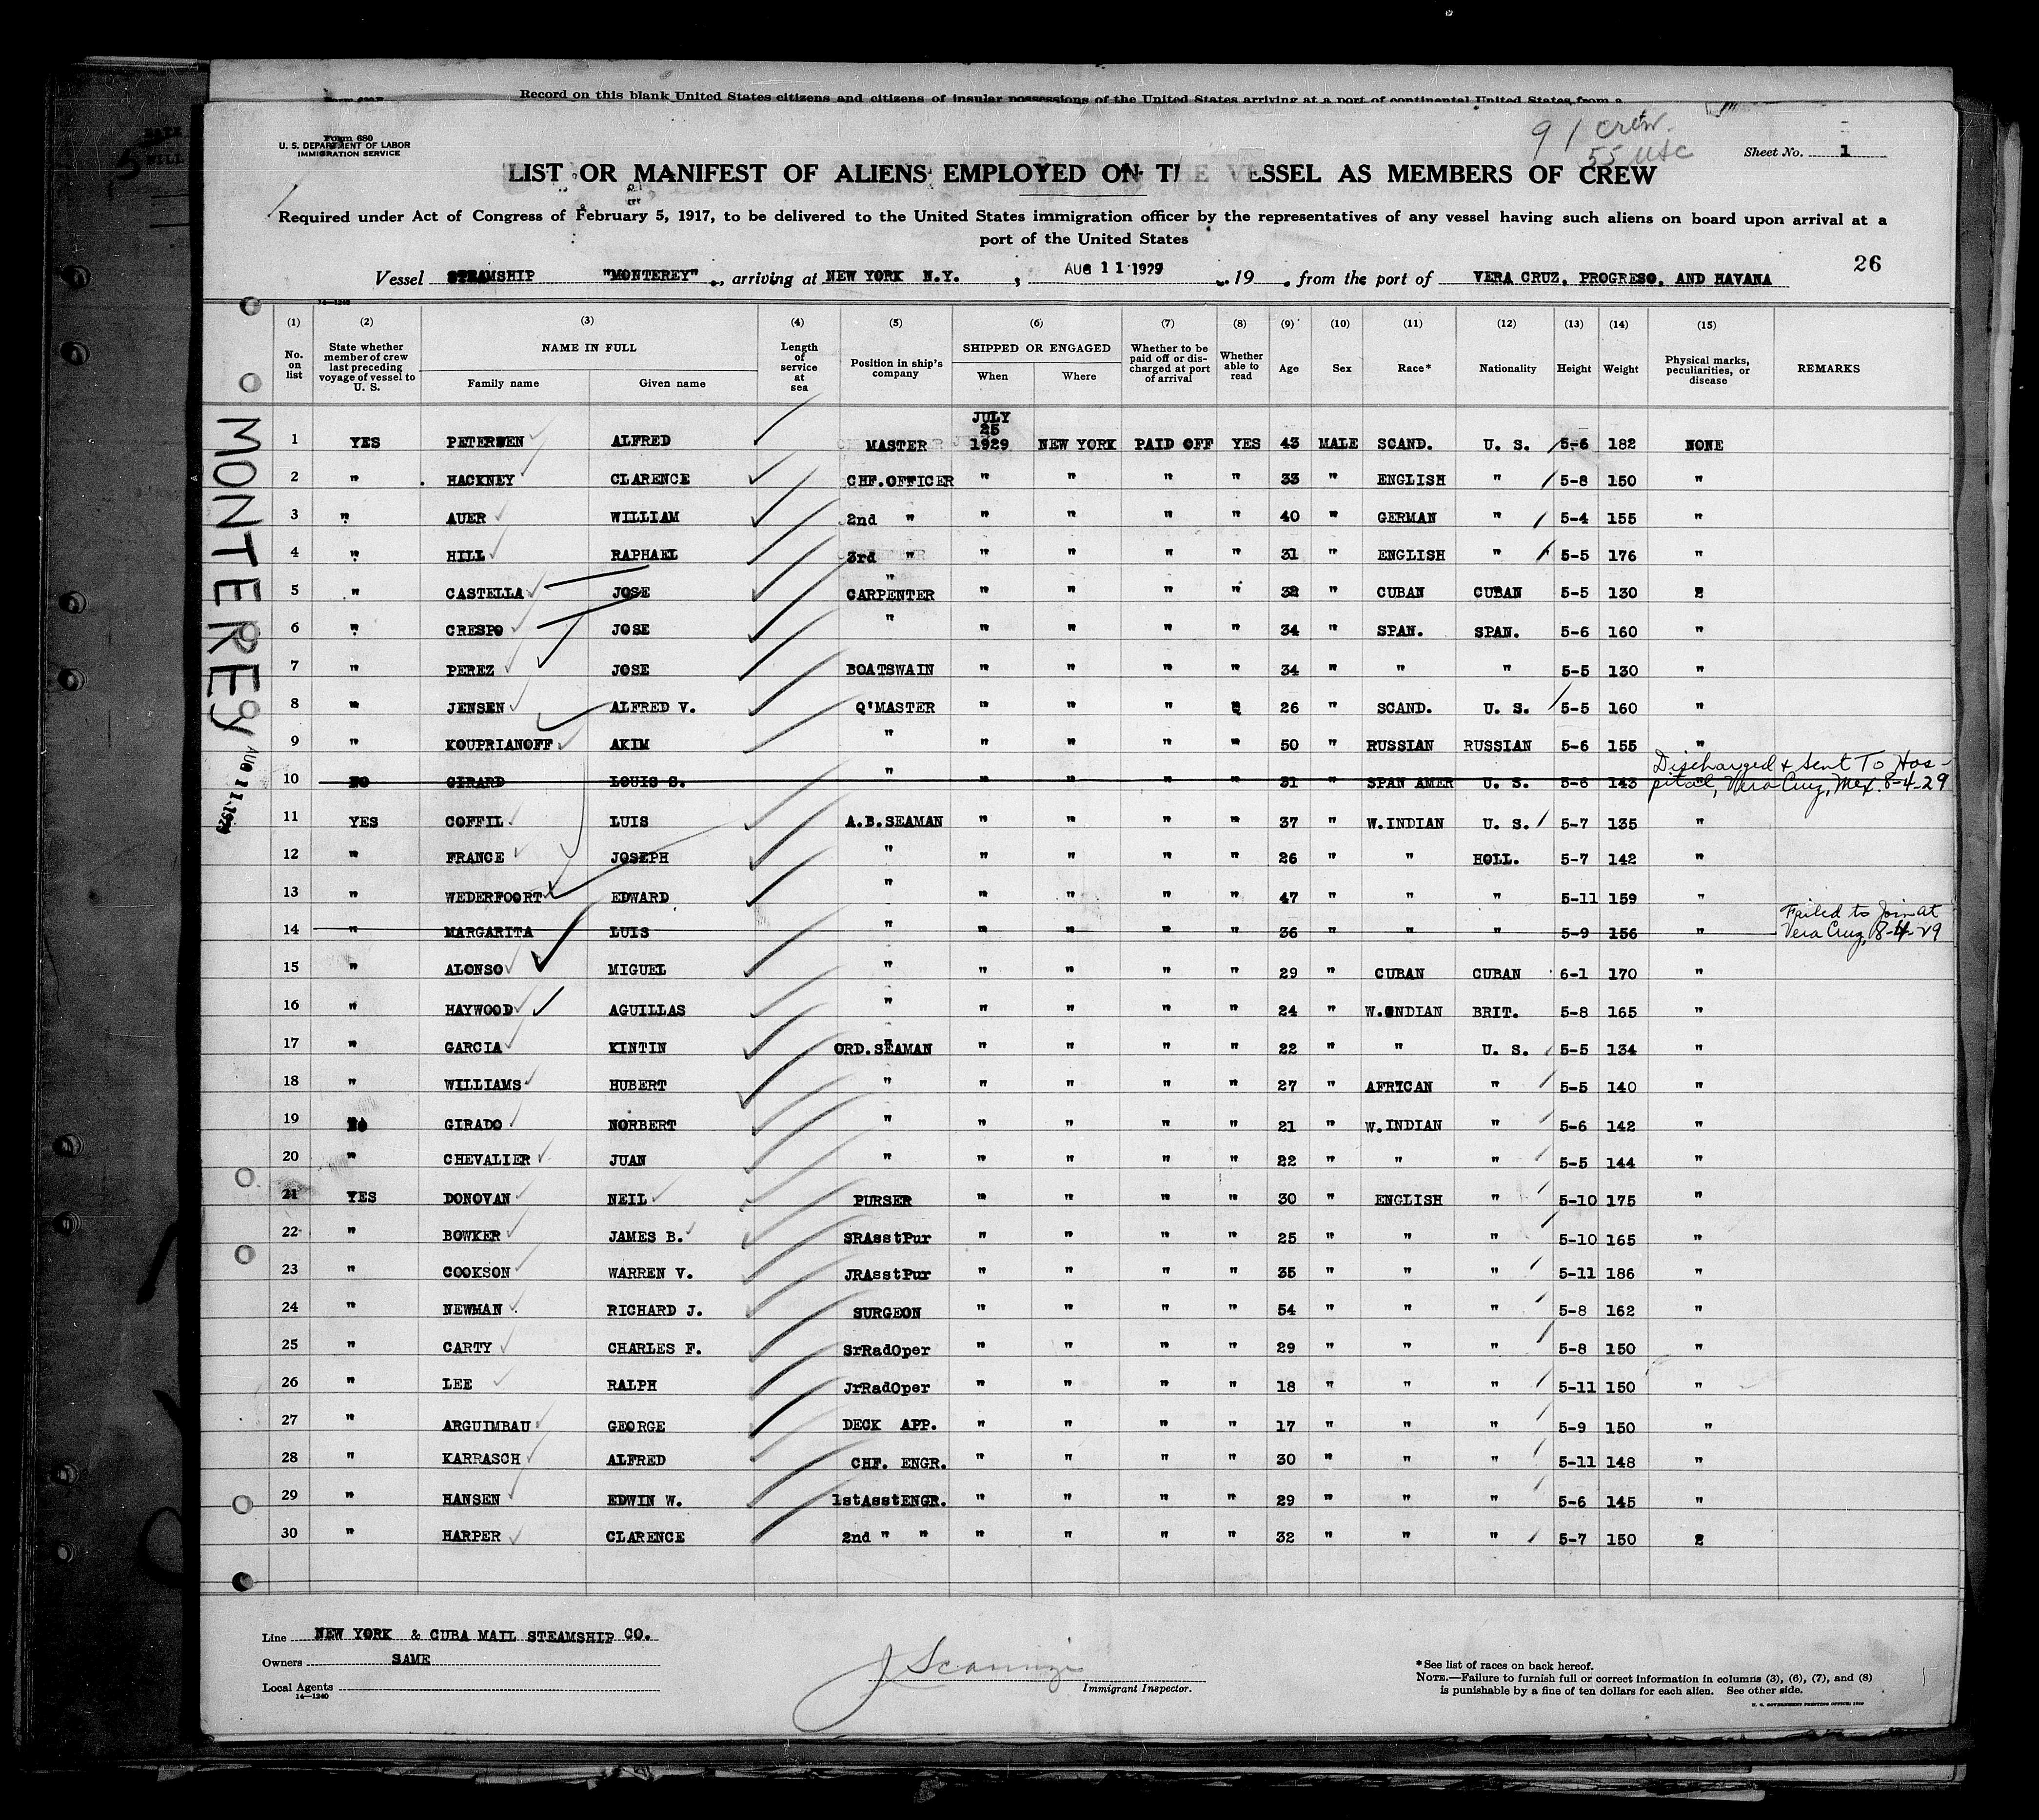 Record on this blank United States citizens and citizens of insular possessions of the United States arriving at a port of continental United States from a
Form 680
U. S. DEPARTMENT OF LABOR
IMMIGRATION SERVICE
91 crew.
55 USC
Sheet No. 1
LIST OR MANIFEST OF ALIENS EMPLOYED ON THE VESSEL AS MEMBERS OF CREW
Required under Act of Congress of February 5, 1917, to be delivered to the United States immigration officer by the representatives of any vessel having such aliens on board upon arrival at a
port of the United States
Vessel STEAMSHIP "MONTEREY", arriving at NEW YORK N.Y., AUG 11 1929, 19 , from the port of VERA CRUZ, PROGRESO, AND HAVANA
26
14—1240
(1) (2) (3) (4) (5) (6) (7) (8) (9) (10) (11) (12) (13) (14) (15)
No. on list State whether member of crew last preceding voyage of vessel to U. S. NAME IN FULL Family name Given name Length of service at sea Position in ship's company SHIPPED OR ENGAGED When Where Whether to be paid off or discharged at port of arrival Whether able to read Age Sex Race* Nationality Height Weight Physical marks, peculiarities, or disease REMARKS
MONTEREY
AUG 11 1929
JULY
25
1 YES PETERSEN ALFRED MASTER 1929 NEW YORK PAID OFF YES 43 MALE SCAND. U. S. 5-6 182 NONE
2 " HACKNEY CLARENCE CHF.OFFICER " " " " 33 " ENGLISH " 5-8 150 "
3 " AUER WILLIAM 2nd " " " " " 40 " GERMAN " 5-4 155 "
4 " HILL RAPHAEL 3rd " " " " " 31 " ENGLISH " 5-5 176 "
5 " CASTELLA JOSE " CARPENTER " " " " 32 " CUBAN CUBAN 5-5 130 "
6 " CRESPO JOSE " " " " " 34 " SPAN. SPAN. 5-6 160 "
7 " PEREZ JOSE BOATSWAIN " " " " 34 " " " 5-5 130 "
8 " JENSEN ALFRED V. Q'MASTER " " " " 26 " SCAND. U. S. 5-5 160 "
9 " KOUPRIANOFF AKIM " " " " " 50 " RUSSIAN RUSSIAN 5-6 155 "
10 NO GIRARD LOUIS S. " " " " " 31 " SPAN AMER U. S. 5-6 143 " Discharged & sent To Hospital, Vera Cruz, Mex. 8-4-29
11 YES COFFIL LUIS A.B.SEAMAN " " " " 37 " W.INDIAN U. S. 5-7 135 "
12 " FRANCE JOSEPH " " " " " 26 " " HOLL. 5-7 142 "
13 " WEDERFOORT EDWARD " " " " " 47 " " " 5-11 159 "
14 " MARGARITA LUIS " " " " " 36 " " " 5-9 156 " Failed to Join at Vera Cruz, 8-4-29
15 " ALONSO MIGUEL " " " " " 29 " CUBAN CUBAN 6-1 170 "
16 " HAYWOOD AGUILLAS " " " " " 24 " W.INDIAN BRIT. 5-8 165 "
17 " GARCIA KINTIN ORD.SEAMAN " " " " 22 " " U. S. 5-5 134 "
18 " WILLIAMS HUBERT " " " " " 27 " AFRICAN " 5-5 140 "
19 NO GIRADO NORBERT " " " " " 21 " W.INDIAN " 5-6 142 "
20 " CHEVALIER JUAN " " " " " 22 " " " 5-5 144 "
21 YES DONOVAN NEIL PURSER " " " " 30 " ENGLISH " 5-10 175 "
22 " BOWKER JAMES B. SRAsstPur " " " " 25 " " " 5-10 165 "
23 " COOKSON WARREN V. JRAsstPur " " " " 35 " " " 5-11 186 "
24 " NEWMAN RICHARD J. SURGEON " " " " 54 " " " 5-8 162 "
25 " CARTY CHARLES F. SrRadOper " " " " 29 " " " 5-8 150 "
26 " LEE RALPH JrRadOper " " " " 18 " " " 5-11 150 "
27 " ARGUIMBAU GEORGE DECK APP. " " " " 17 " " " 5-9 150 "
28 " KARRASCH ALFRED CHF. ENGR. " " " " 30 " " " 5-11 148 "
29 " HANSEN EDWIN W. 1stAsstENGR. " " " " 29 " " " 5-6 145 "
30 " HARPER CLARENCE 2nd " " " " " " 32 " " " 5-7 150 "
Line NEW YORK & CUBA MAIL STEAMSHIP CO.
Owners SAME
Local Agents
14—1240
Immigrant Inspector.
*See list of races on back hereof.
NOTE.—Failure to furnish full or correct information in columns (3), (6), (7), and (8)
is punishable by a fine of ten dollars for each alien. See other side.